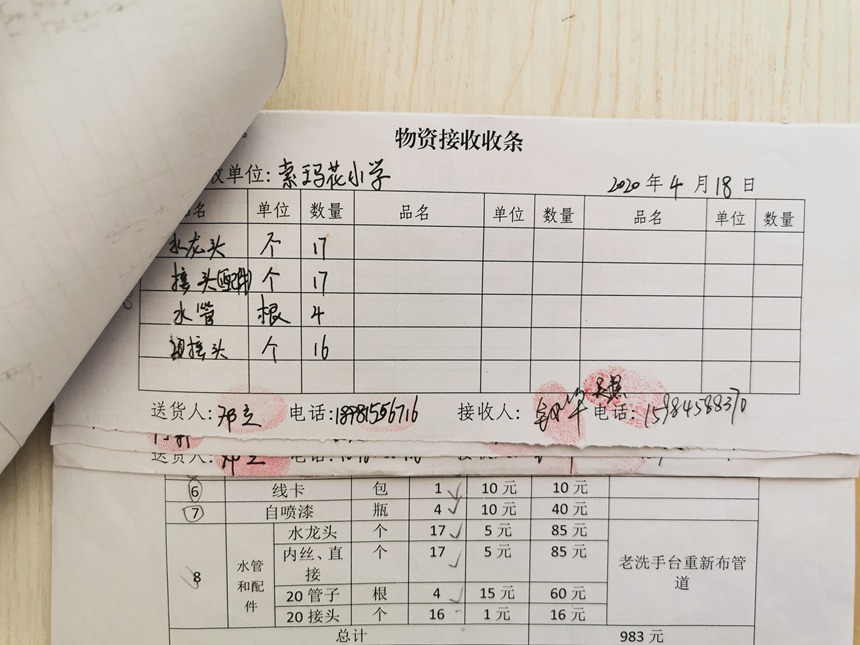 物资接收收条
单位：索玛花小学 2020年4月18日
名 单位 数量 品名 单位 数量 品名 单位 数量
水龙头 个 17
接头(配件) 个 17
水管 根 4
接头 个 16
送货人：邓立 电话：18981556716 接收人： 电话：15984588370
送货人：邓立
6 线卡 包 1 10元 10元
7 自喷漆 瓶 4 10元 40元
8 水管和配件 水龙头 个 17 5元 85元 老洗手台重新布管道
内丝、直接 个 17 5元 85元
20管子 根 4 15元 60元
20接头 个 16 1元 16元
总计 983元